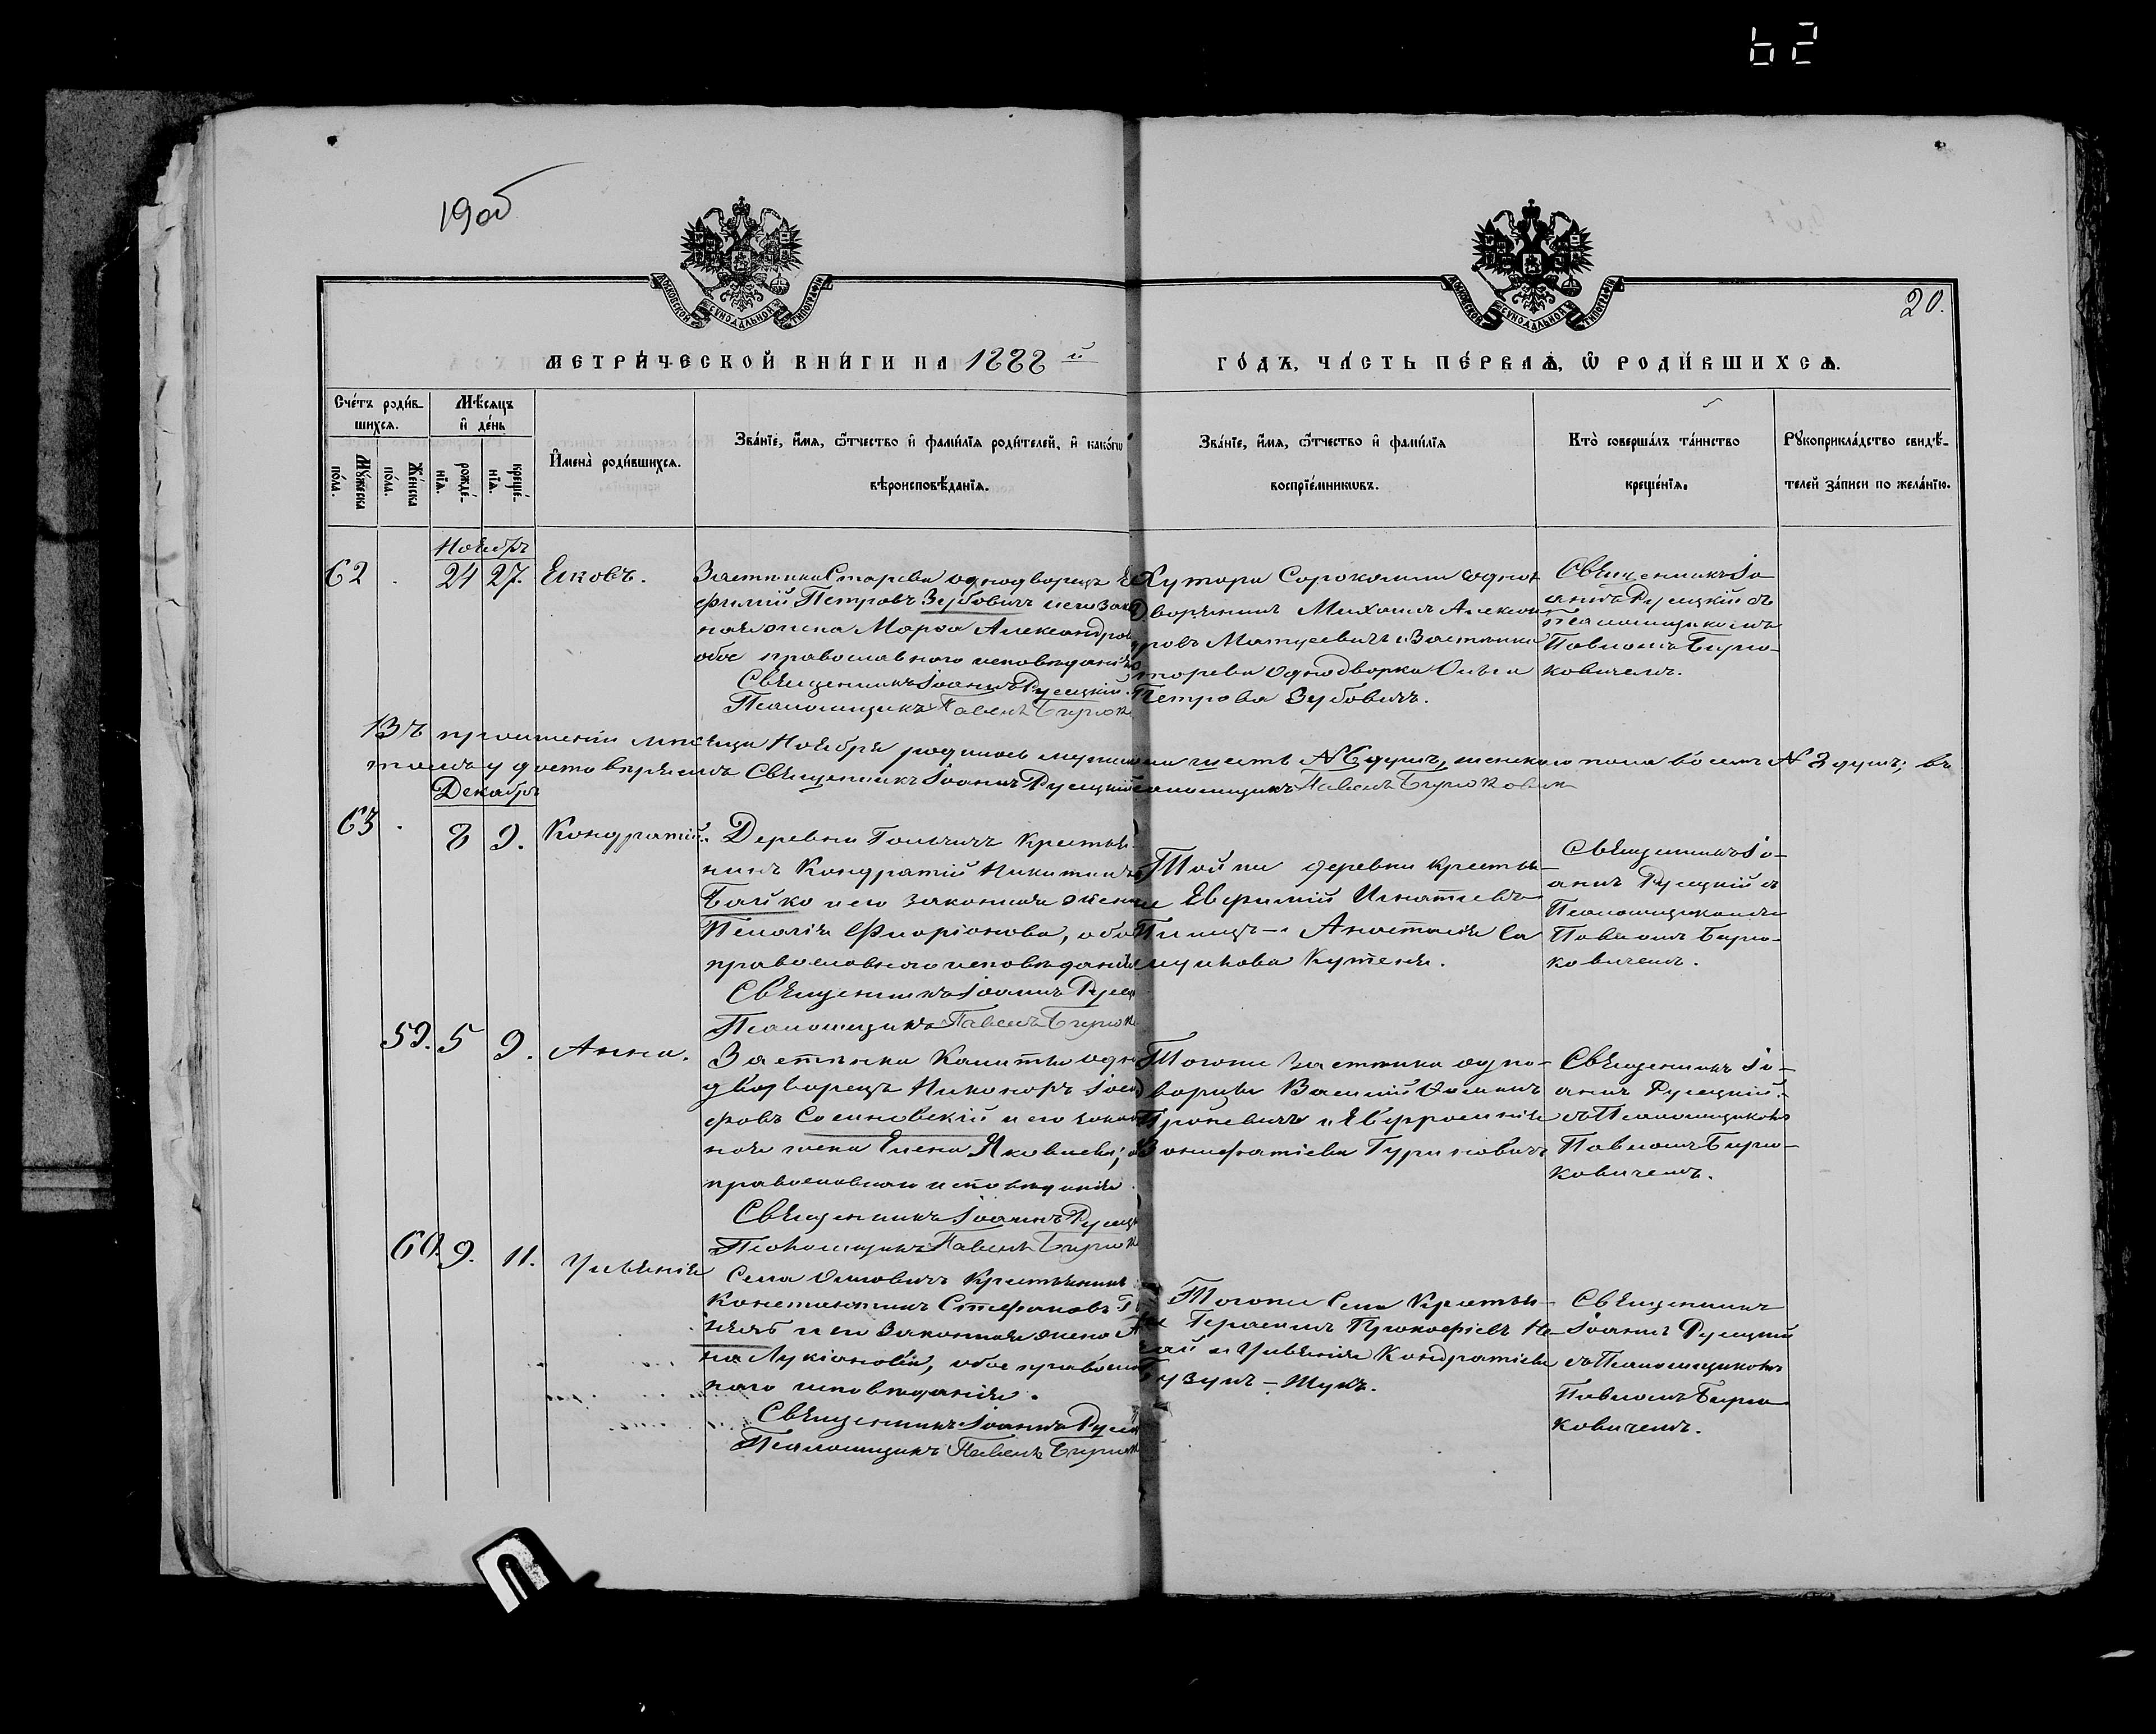 62
19об
МОСКОВСКОЙ СУНОДАЛЬНОЙ ТИПОГРАФІИ
МОСКОВСКОЙ СУНОДАЛЬНОЙ ТИПОГРАФІИ
20.
МЕТРИ́ЧЕСКОЙ КНИ́ГИ НА 1888 й
ГО́ДЪ, ЧА́СТЬ ПЕ́РВАѦ, Ѽ РОДИ́ВШИХСѦ.
Сче́тъ роди́в-
шихся.
Мѣ́сяцъ
и҆ де́нь
Мꙋ́жеска
по́ла.
Же́нска
по́ла.
рожде́-
нїѧ.
креще́-
нїѧ.
И҆мена̀ роди́вшихсѧ.
Зва́нїе, и҆́мѧ, ѻ҆́тчество и҆ фами́лїѧ роди́телей, и҆ како́гѡ
вѣроисповѣ́данїѧ.
Зва́нїе, и҆́мѧ, ѻ҆́тчество и҆ фами́лїѧ
воспрїе́мникѡвъ.
Кто̀ соверша́лъ та́инство
креще́нїѧ.
Рꙋкоприкла́дство свидѣ́-
телей за́писи по жела́нїю.
Ноябрь
62 . 24 27. Яковъ.
Застѣнка Старева однодворецъ Ев
фимій Петровъ Зубовичъ и его закон
ная жена Марѳа Александрова
обое православнаго исповѣданія
Священникъ Іоаннъ Русецкій.
Псаломщикъ Павелъ Бирюк
Хутора Сорокалши однод
ворянинъ Михаилъ Александ
ровъ Матусевичъ и Застѣнка
Старева Однодворка Ольга
Петрова Зубовичъ.
Священникъ Іо
аннъ Русецкій съ
Псаломщикомъ
Павломъ Бирю-
ковичемъ.
Въ продолженіи мѣсяца Ноября родилось мужска пола шесть № 6 душъ, женскаго пола восемь № 8 душъ; въ
томъ удостовѣряемъ Священникъ Іоаннъ Русецкій Псаломщикъ Павелъ Бирюкович
Декабрь
63 . 8 9. Кондратій.
Деревни Гольчичъ Крестья-
нинъ Кондратій Никитинъ
Байко и его законная жена
Пелагія Фларіонова, обое
православнаго исповѣданія
Священникъ Іоаннъ Русец
Псаломщикъ Павелъ Бирюк
Той же деревни крестья-
не Евфимій Игнатіевъ
Анастасія Са
Кутеня.
Священникъ Іо-
аннъ Русецкій съ
Псаломщикомъ
Павломъ Бирю-
ковичемъ.
59. 5 9. Анна.
Застѣнка Калитка одно
дворецъ Никоноръ Іоси
фовъ Сосиновскій и его закон
ная жена Елена Яковлева; обое
православнаго исповѣданія.
Священникъ Іоаннъ Русец
Псаломщикъ Павелъ Бирюк
Тогоже застѣнка одно-
дворцы Василій Ѳоминъ
Проневичъ и Евфросинія
Вонифатіева Гуриновичъ
Священникъ Іо-
аннъ Русецкій.
съ Псаломщикомъ
Павломъ Бирю-
ковичемъ.
60. 9. 11. Уліянія
Села Крестьянинъ
Константинъ Стефановъ
и его Законная жена Ан
на Лукіанова, обое правосла
наго исповѣданія.
Священникъ Іоаннъ Русец
Псаломщикъ Павелъ Бирюк
Тогоже Села Крестья-
не Герасимъ Прокофіевъ Не-
чай и Уліянія Кондратіева
Священникъ
Іоаннъ Русецкій
съ Псаломщикомъ
Павломъ Бирю
ковичемъ.